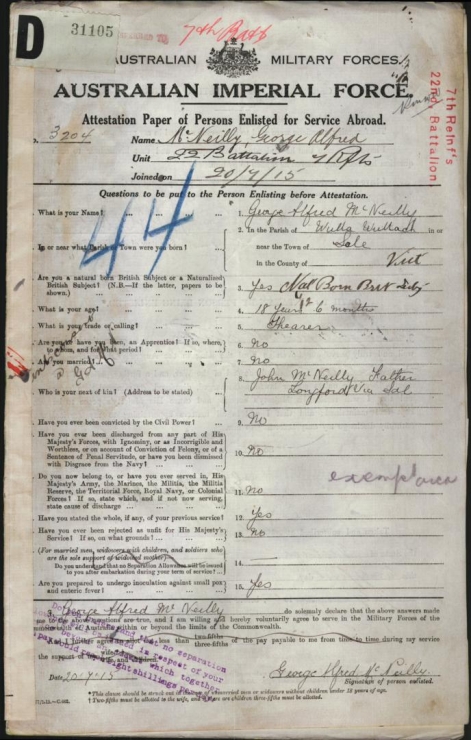 D
31105
7th Batt
AUSTRALIAN MILITARY FORCES.
AUSTRALIAN IMPERIAL FORCE.
7th Reinf's
22nd Battalion
Attestation Paper of Persons Enlisted for Service Abroad.
3204 Name McNeilly George Alfred
Unit 22 Battalion 7 Rfts
Joined on 20/7/15
Questions to be put to the Person Enlisting before Attestation.
44
What is your Name? ... 1. George Alfred McNeilly
In or near what Parish or Town were you born? ... 2. In the Parish of Wulla Wullock in or
near the Town of Sale
in the County of Vict
Are you a natural born British Subject or a Naturalised British Subject? (N.B.—If the latter, papers to be shown.) 3. Yes Nat Born Brit Subj
What is your age? ... 4. 18 Years 6 months
What is your trade or calling? ... 5. Shearer
Are you, or have you been, an Apprentice? If so, where, to whom, and for what period? 6. No
Are you married? ... 7. No
Who is your next of kin? (Address to be stated) ... 8. John McNeilly Father
Longford Via Sale
Have you ever been convicted by the Civil Power? ... 9. No
Have you ever been discharged from any part of His
Majesty's Forces, with Ignominy, or as Incorrigible and
Worthless, or on account of Conviction of Felony, or of a
Sentence of Penal Servitude, or have you been dismissed
with Disgrace from the Navy? ... 10. no
Do you now belong to, or have you ever served in, His
Majesty's Army, the Marines, the Militia, the Militia
Reserve, the Territorial Force, Royal Navy, or Colonial
Forces? If so, state which, and if not now serving,
state cause of discharge ... 11. no
exempt area
Have you stated the whole, if any, of your previous service? 12. yes
Have you ever been rejected as unfit for His Majesty's
Service? If so, on what grounds? ... 13. no
(For married men, widowers with children, and soldiers who
are the sole support of widowed mother)—
Do you understand that no Separation Allowance will be issued
to you after embarkation during your term of service? 14.
Are you prepared to undergo inoculation against small pox
and enteric fever? 15. Yes
I, George Alfred McNeilly do solemnly declare that the above answers made
by me to the above questions are true, and I am willing and hereby voluntarily agree to serve in the Military Forces of the
Commonwealth of Australia within or beyond the limits of the Commonwealth.
And I further agree to allot not less than two-fifths
three-fifths of the pay payable to me from time to time during my service
for the support of my wife
Date 20.7.15
George Alfred McNeilly.
Signature of person enlisted.
*This clause should be struck out in the case of unmarried men or widowers without children under 18 years of age.
† Two-fifths must be allotted to the wife, and if there are children three-fifths must be allotted.